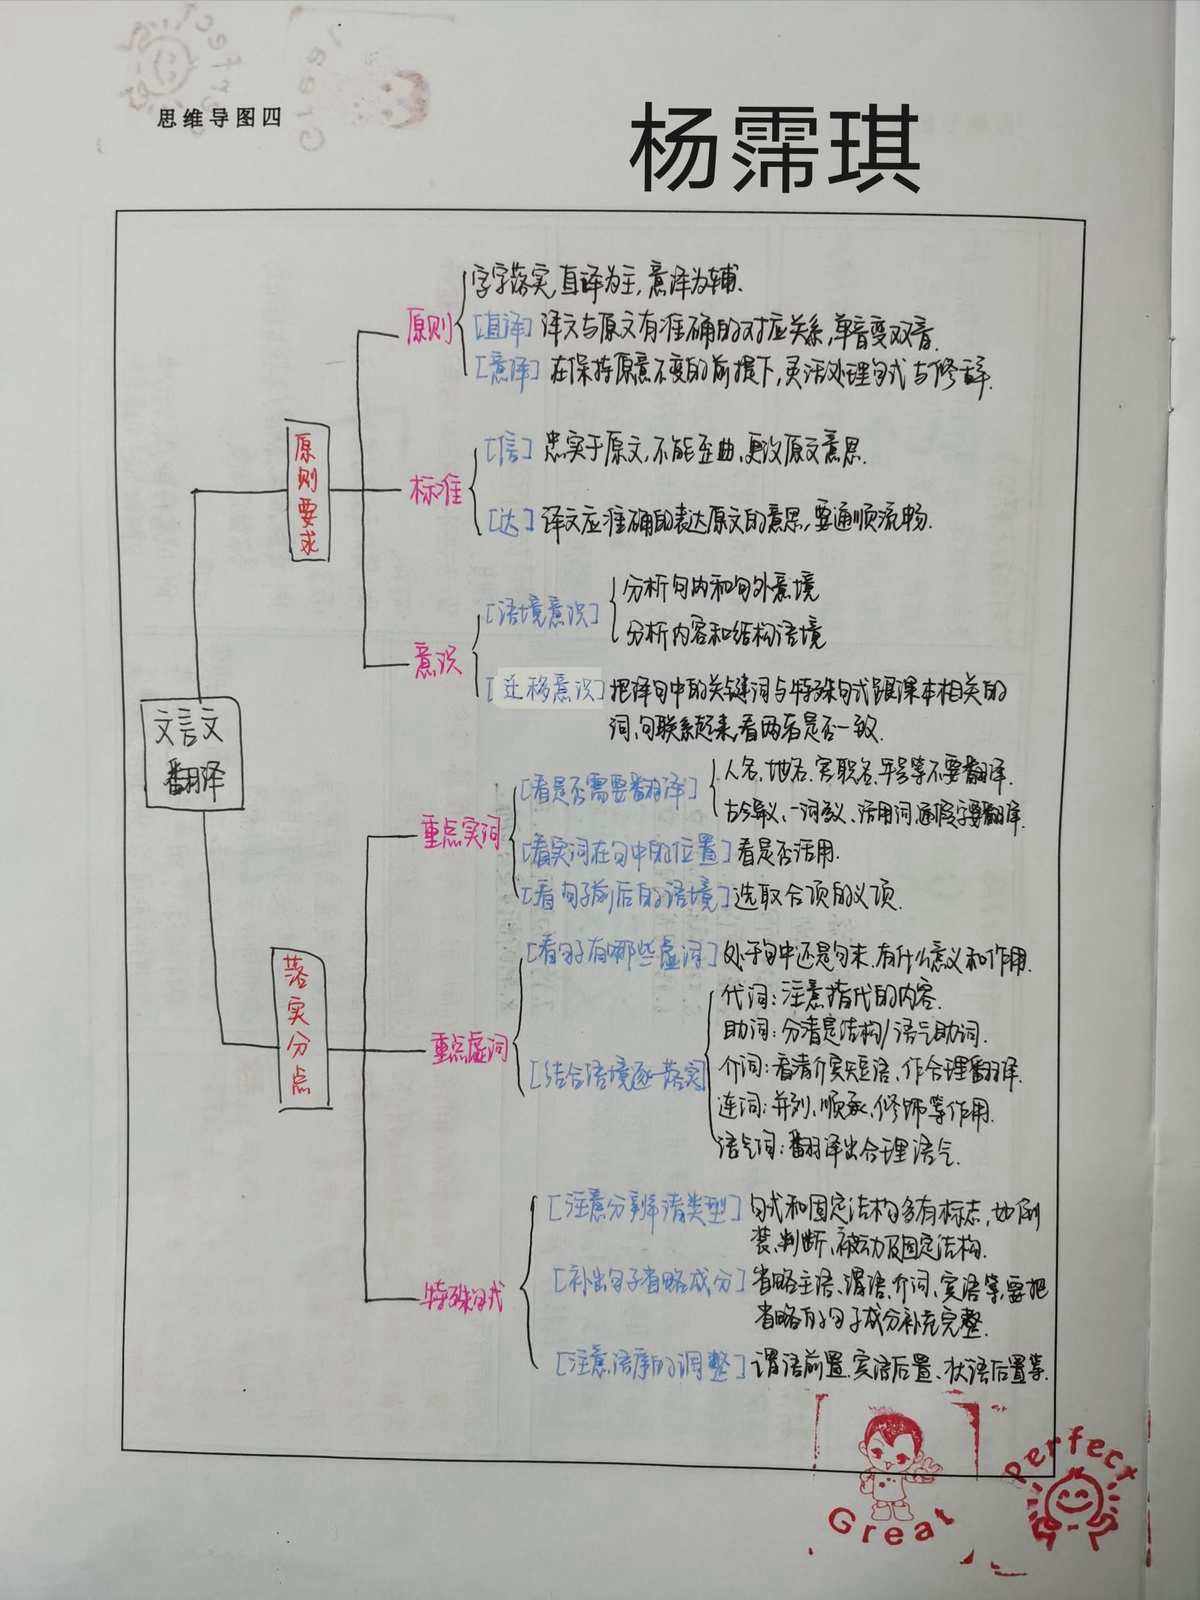 思维导图四
杨霈琪
原则
字字落实,直译为主,意译为辅.
[直译] 译文与原文有准确的对应关系,单音变双音.
[意译] 在保持原意不变的前提下,灵活处理句式与修辞.
原则要求
标准
[信] 忠实于原文,不能歪曲、更改原文意思.
[达] 译文应准确的表达原文的意思,要通顺流畅.
意识
[语境意识]
分析句内和句外意境
分析内容和结构语境
[迁移意识] 把译句中的关键词与特殊句式跟课本相关的
词、句联系起来,看两者是否一致.
文言文
翻译
重点实词
[看是否需要翻译]
人名、地名、官职名、年号等不要翻译.
古今异义、一词多义、活用词、通假字要翻译.
[看实词在句中的位置] 看是否活用.
[看句子前后的语境] 选取合项的义项.
落实分点
重点虚词
[看句子有哪些虚词] 处于句中还是句末、有什么意义和作用.
[结合语境逐一落实]
代词:注意指代的内容.
助词:分清是结构/语气助词.
介词:看清介宾短语、作合理翻译.
连词:并列、顺承、修饰等作用.
语气词:翻译出合理语气.
特殊句式
[注意分辨清类型] 句式和固定结构多有标志,如倒
装、判断、被动及固定结构.
[补出句子省略成分] 省略主语、谓语、介词、宾语等,要把
省略的句子成分补充完整.
[注意语序的调整] 谓语前置、宾语后置、状语后置等.
Great
Perfect